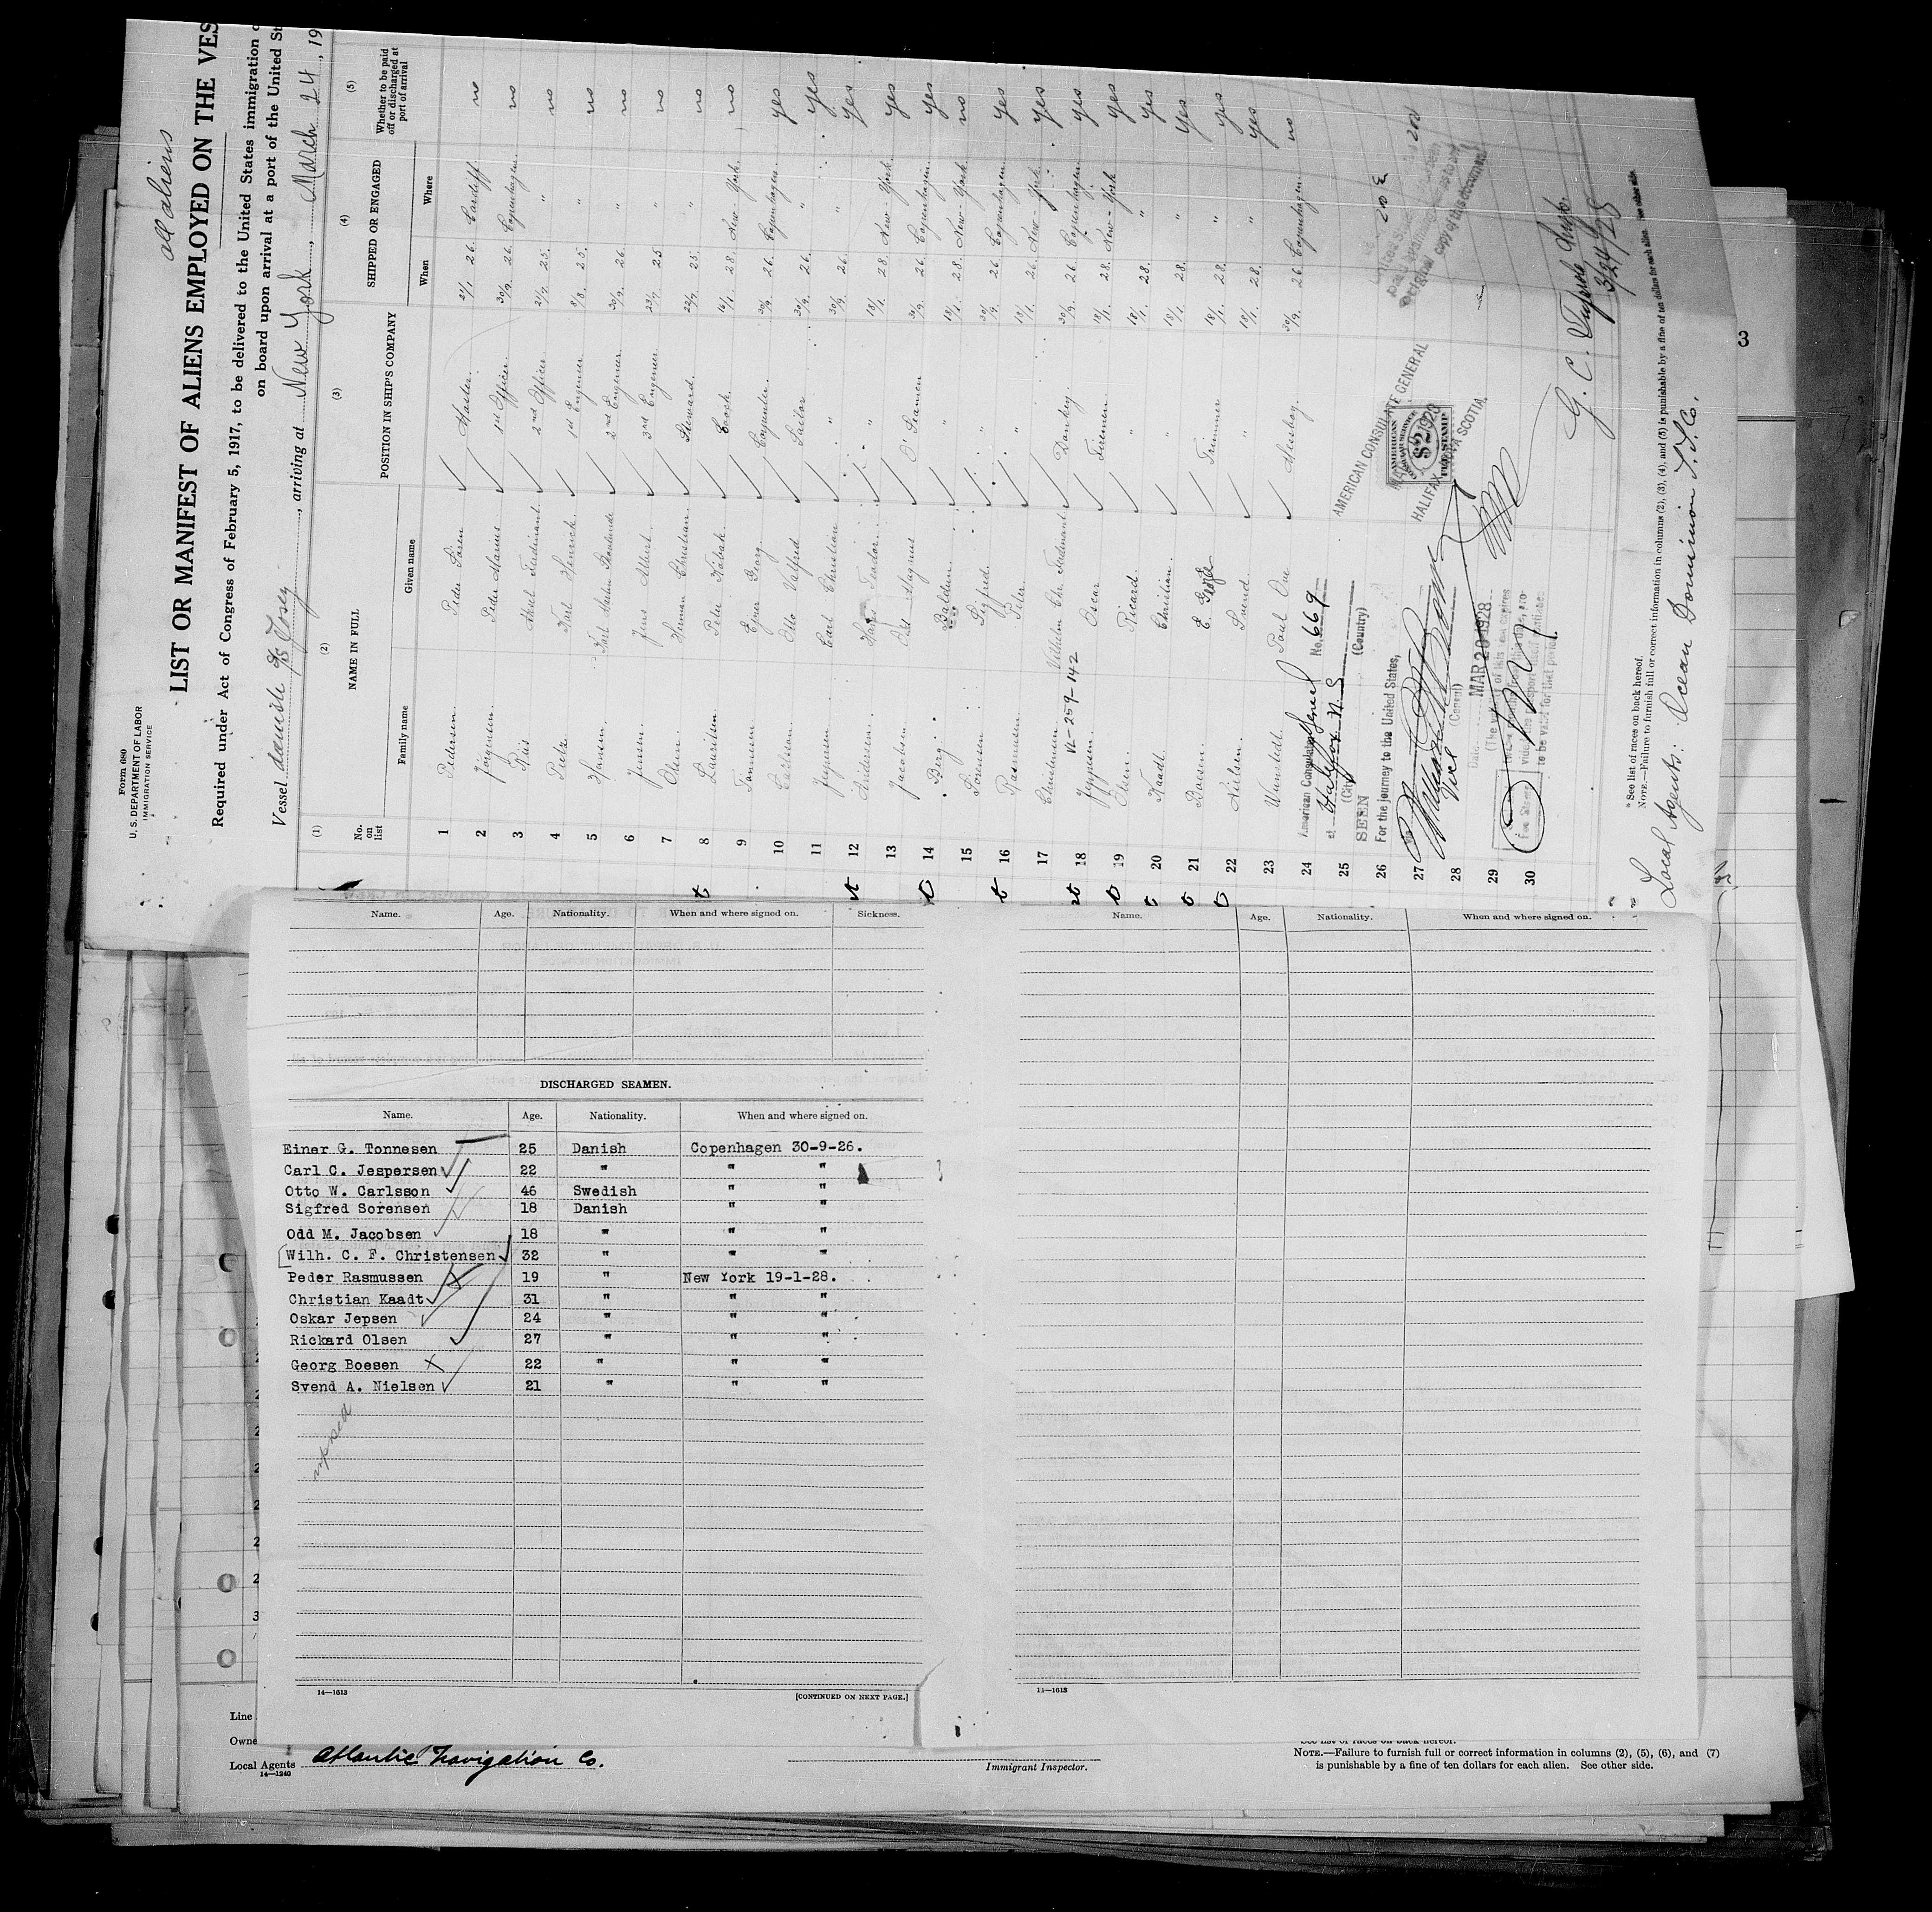 Form 680
U. S. DEPARTMENT OF LABOR
IMMIGRATION SERVICE
all aliens
LIST OR MANIFEST OF ALIENS EMPLOYED ON THE VES
Required under Act of Congress of February 5, 1917, to be delivered to the United States immigration
on board upon arrival at a port of the United St
Vessel danish, arriving at New York, March 24, 19
(1) (2) (3) (4) (5)
No. on list NAME IN FULL POSITION IN SHIP'S COMPANY SHIPPED OR ENGAGED Whether to be paid off or discharged at port of arrival
Family name Given name When Where
1 Pedersen Peder Sören Master 26. Cardiff no
2 Jörgensen Peder Marius 1st Officer 30/9. 26. Copenhagen no
3 Riis Aksel Ferdinant 2nd Officer 25. " no
4 Karl Henrich 1st Engineer 25. " no
5 Hansen Karl Martin 2nd Engineer 30/9. 26. " no
6 Jensen Jens Albert 3rd Engineer 25 " no
7 Olsen Herman Christian Steward 25. " no
8 Lauritsen Peter 28. New-York. no
9 Tönnesen Ejner Georg Carpenter 30/9. 26. Copenhagen. yes
10 Carlsson Otto Valfred Sailor 30/9. 26. " yes
11 Jespersen Carl Christian " 30/9. 26. " yes
12 Andersen Teodor " 18/1. 28. New-York. yes
13 Jacobsen Odd Magnus O' Seamen 30/9. 26. Copenhagen. yes
14 Berg Balduin " 18/1. 28. New-York no
15 Sörensen Sigfred " 30/9. 26 Copenhagen yes
16 Rasmusen Peter " 18/1. New-York. yes
17 Christensen Vilhelm Chr. Ferdinant Donkey 30/9. 26. Copenhagen yes
VL-259-142
18 Jeppesen Oscar Firemen 18/1. 28. New-York yes
19 Olsen Ricard " 18/1. 28. " yes
20 Kaadt Christian " 18/1. 28. " yes
21 Boesen E. George Trimmer 18/1. 28. " yes
22 Nielsen Svend " 18/1. 28. " yes
23 Poul Ove Messboy 30/9. 26 Copenhagen no
24
25
26
27
28
29
30
American Consulate General No. 669
at Halifax N.S
(City) (Country)
SEEN
For the journey to the United States,
Vice (Consul)
Date MAR 20 1928
AMERICAN CONSULATE GENERAL
HALIFAX, NOVA SCOTIA.
AMERICAN
$2
FEE STAMP
3/24/28
* See list of races on back hereof.
NOTE.—Failure to furnish full or correct information in columns (2), (3), (4), and (5) is punishable by a fine of ten dollars for each alien. See other side.
Local Agents: Ocean Dominion S.S.Co.
3
Name. Age. Nationality. When and where signed on. Sickness.
DISCHARGED SEAMEN.
Name. Age. Nationality. When and where signed on.
Einer G. Tonnesen 25 Danish Copenhagen 30-9-26.
Carl C. Jespersen 22 " " "
Otto W. Carlsson 46 Swedish " "
Sigfred Sorensen 18 Danish " "
Odd M. Jacobsen 18 " " "
Wilh. C. F. Christensen 32 " " "
Peder Rasmussen 19 " New York 19-1-28.
Christian Kaadt 31 " " "
Oskar Jepsen 24 " " "
Rickard Olsen 27 " " "
Georg Boesen 22 " " "
Svend A. Nielsen 21 " " "
14—1613
[CONTINUED ON NEXT PAGE.]
Name. Age. Nationality. When and where signed on.
11—1613
Line
Owne
Local Agents Atlantic Navigation Co.
14—1240
Immigrant Inspector.
NOTE.—Failure to furnish full or correct information in columns (2), (5), (6), and (7)
is punishable by a fine of ten dollars for each alien. See other side.